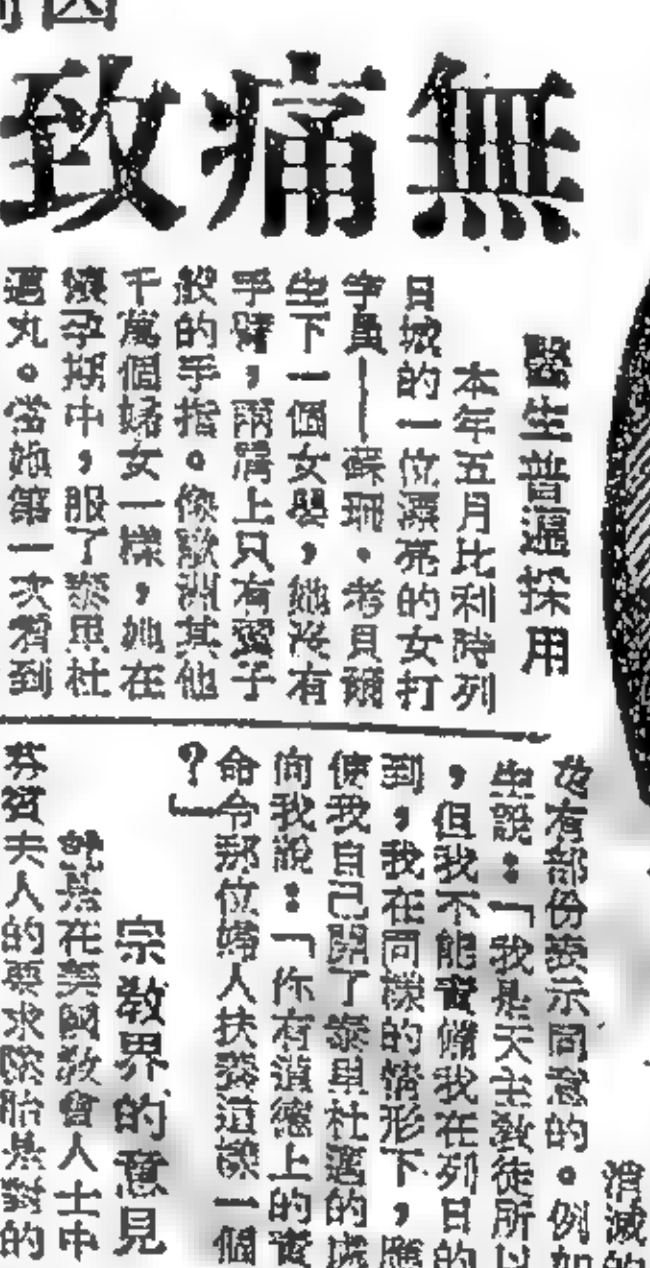 無痛致
醫生普遍採用
本年五月比利時列
日城的一位漂亮的女打
字員——蘇珊·考貝爾
生下一個女嬰，她沒有
手臂，兩肩上只有蠶子
般的手指。像歐洲其他
千萬個婦女一樣，她在
懷孕期中，服了泰里杜
邁丸。當她第一次看到
消滅的
也有部份表示同意的。例如
生說：「我是天主教徒所以
，但我不能責備我在列日的
到，我在同樣的情形下，應
使我自己開了泰里杜邁的
向我說：「你有道德上的責
命令那位婦人扶養這樣一個
？」
宗教界的意見
就是在美國教會人士中
芬賓夫人的要求墮胎是對的